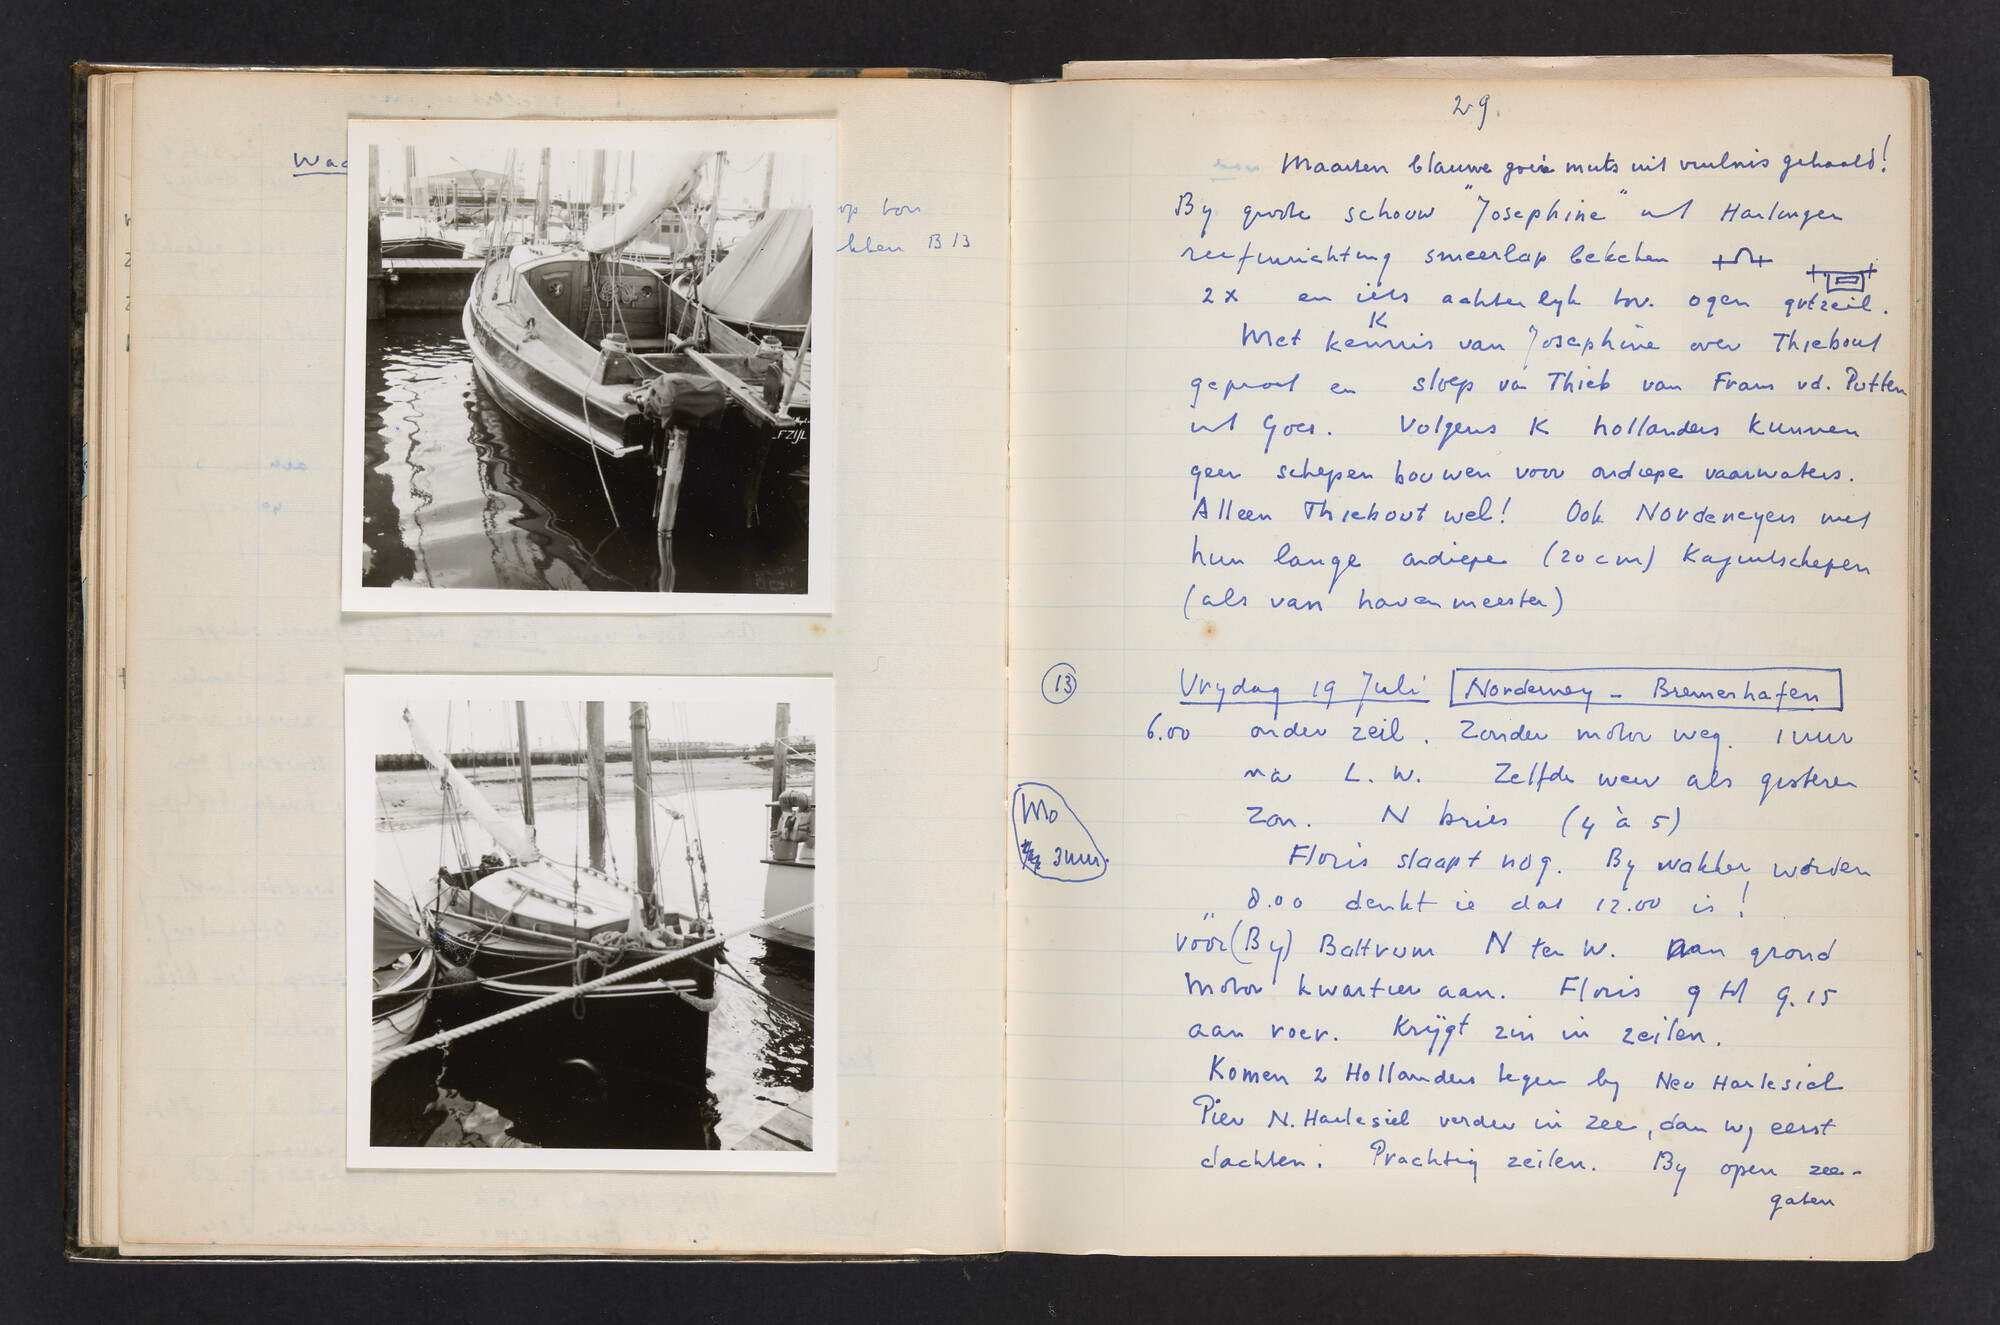 op ton
B 13
F ZIJL
29
Maarten blauwe muts uit vuilnis gehaald!
By grote schouw "Josephine" uit Harlingen
reefinrichting smeerlap bekeken
2x en iets achterlyk tov. ogen grtzeil.
K
Met kennis van Josephine over Thiebout
gepraat en sloep van Thieb van Frans vd. Putten
uit Goes. Volgens K hollanders kunnen
geen schepen bouwen voor ondiepe vaarwaters.
Alleen Thiebout wel! Ook Nordeneyers met
hun lange ondiepe (20 cm) Kajuitschepen
(als van havenmeester)
13 Vrydag 19 Juli Norderney - Bremerhafen
6.00 onder zeil. Zonder motor weg. 1 uur
na L.W. Zelfde weer als gisteren
Mo
Zon. N bries (4 à 5)
3 uur.
Floris slaapt nog. By wakker worden
,, 8.00 denkt ie dat 12.00 is!
vóór (By) Baltrum N ter W. aan grond
Motor kwartier aan. Floris 9 tot 9.15
aan roer. Krijgt zin in zeilen.
Komen 2 Hollanders tegen by Neu Harlesiel
Pier N. Harlesiel verder in zee, dan wy eerst
dachten. Prachtig zeilen. By open zee-
gaten